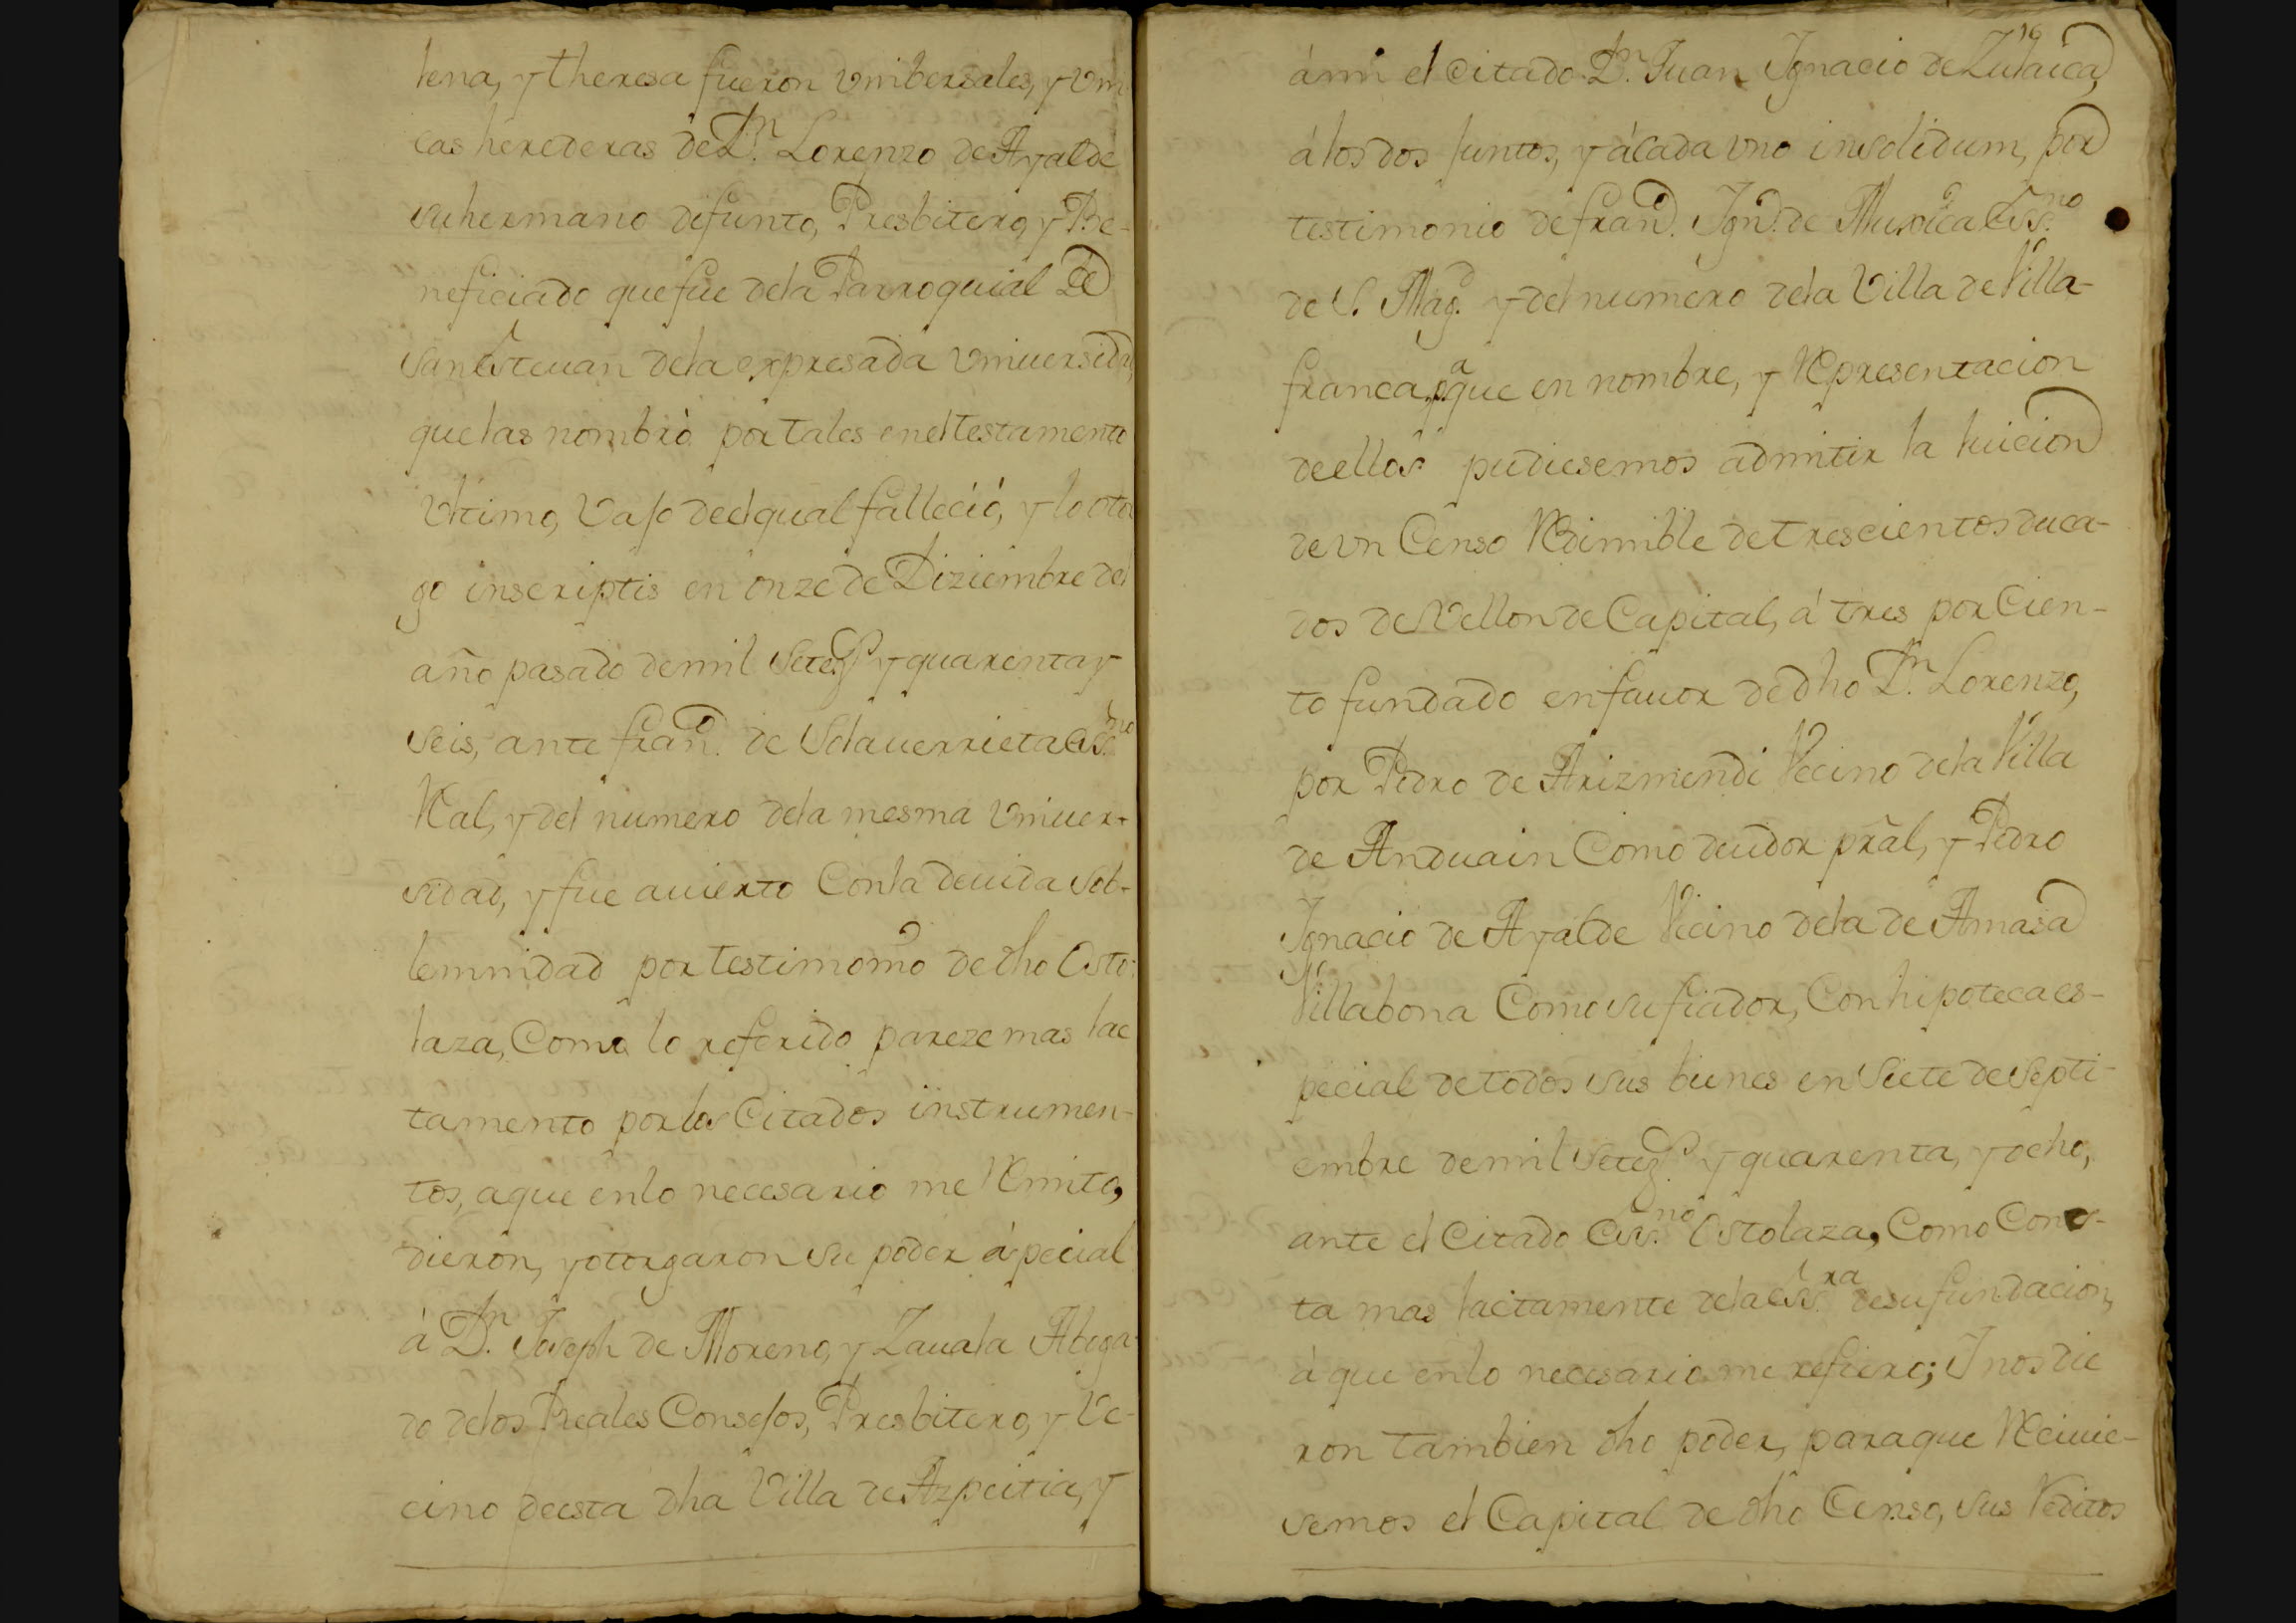 lena, y theresa fueron vnibersales, y vni
cas herederas de Dn. Lorenzo de Ayalde
su hermano difunto, Presbitero, y Be-
neficiado que fue dela Parroquial De
San Esteuan dela expresada vniuersidad,
que las nombrò por tales en el testamento
vltimo, vajo de el qual falleció, y lo otor
go inscriptis en onze de Diziembre del
año pasado de mil Setezs. y quarenta y
seis, ante frano. de Olauerrieta Essno.
Real, y del numero dela mesma vniuer-
sidad, y fue auierto Con la deuida sob-
lemnidad por testimonio de dho Osto-
laza, Como lo referido pareze mas lac
tamento por los Citados instrumen-
tos, aque en lo necesario me Remito,
dieron, y otorgaron su poder especial
à Dn. Joseph de Moreno, y Zauala Aboga-
do delos Reales Consejos, Presbitero, y Ve-
cino de esta dha Villa de Azpeitia, y
16
ámi el citado Dn. Juan Ignacio de Zulaica,
á los dos Juntos, y ácada vno insolidum, por
testimonio de frano. Igno. de Muxica Essno.
de S. Magd. y del numero dela Villa de Villa-
franca, pa que en nombre, y Representacion
de ellos pudiesemos admitir la luicion
de vn Censo Redimible de trescientos duca-
dos de Vellon de Capital, á tres por Cien-
to fundado en fauor de dho Dn. Lorenzo,
por Pedro de Arizmendi Vecino dela Villa
de Anduain Como deudor pral, y Pedro
Ignacio de Ayalde Vecino dela de Amasa
Villabona Como su fiador, Con hipoteca es-
pecial de todos sus bienes en Siete de Septi-
embre de mil Setezs. y quarenta, y ocho,
ante el Citado Essno. Ostolaza, Como Cons-
ta mas lactamente dela Essra. de su fundacion,
à que en lo necesario me refiero; I nos die
ron tambien dho poder, para que Reciuie-
semos el Capital de dho Censo, sus Reditos